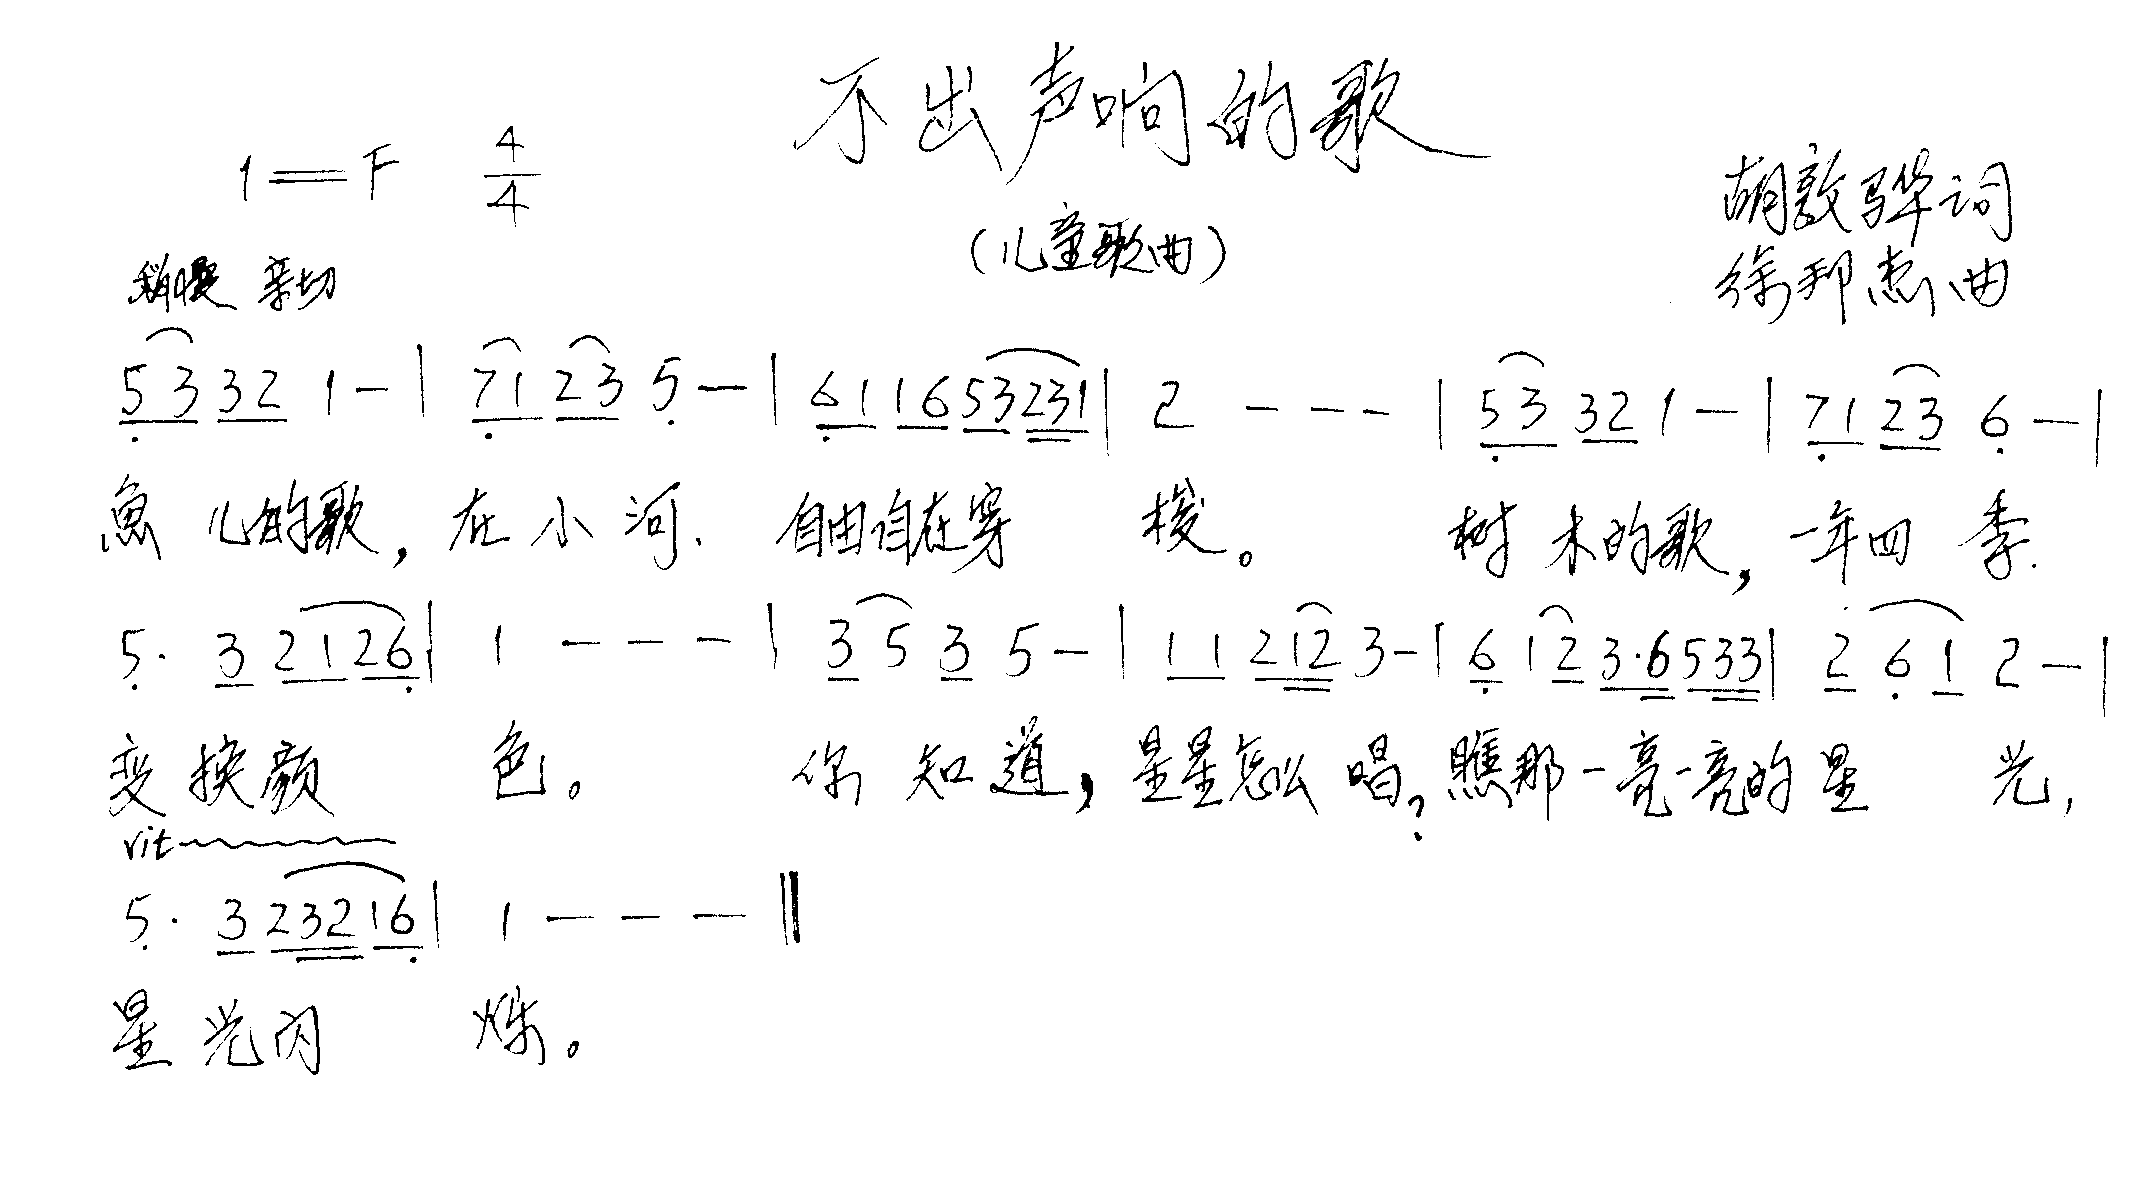 不出声响的歌
1=F 4/4
(儿童歌曲)
胡敦骅词
徐邦杰曲
稍慢 亲切
5 3 3 2 1 - | 7 1 2 3 5 - | 6 1 1 6 5 3 2 3 1 | 2 - - - | 5 3 3 2 1 - | 7 1 2 3 6 - |
魚儿的歌，在小河、自由自在穿梭。树木的歌，一年四季.
5· 3 2 1 2 6 | 1 - - - | 3 5 3 5 - | 1 1 2 1 2 3 - | 6 1 2 3·6 5 3 3 | 2 6 1 2 - |
变换颜色。你知道，星星怎么唱？瞧那一亮一亮的星光，
rit
5· 3 2 3 2 1 6 | 1 - - - ‖
星光闪烁。